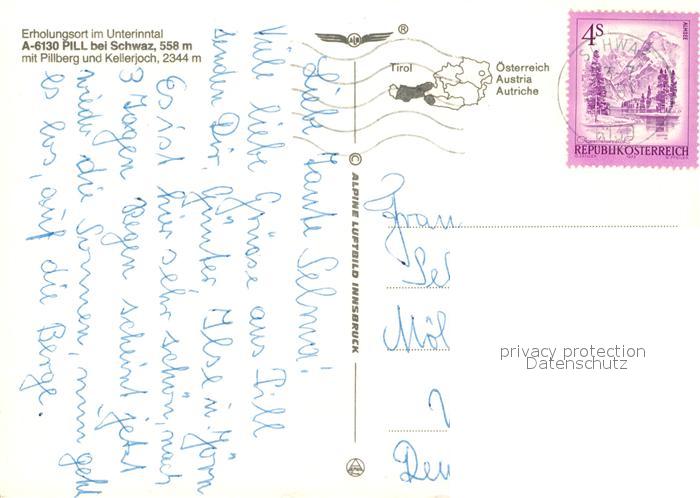 Erholungsort im Unterinntal
A-6130 PILL bei Schwaz, 558 m
mit Pillberg und Kellerjoch, 2344 m
®
Tirol
Österreich
Austria
Autriche
4S
ALMSEE
SCHWAZ
REPUBLIK ÖSTERREICH
© ALPINE LUFTBILD INNSBRUCK
Liebe Tante Selma!
Viele liebe Grüße aus Pill
senden Dir, Günter, Ilse u. Jörn
Es ist hier sehr schön, nach
3 Tagen Regen scheint jetzt
wieder die Sonne, nun geht
es los, auf die Berge.
Frau
Sel
Möl
privacy protection
Datenschutz